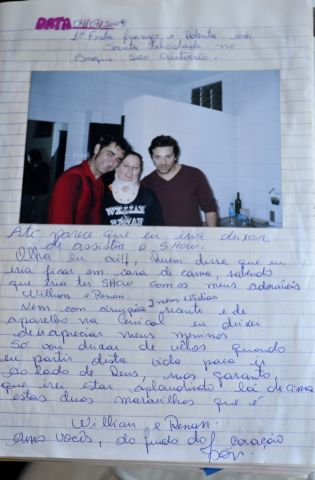 DATA 04/07/2004
1ª Festa frango e Polenta em
Santa Felicidade no
Bosque São Cristóvão.
WILLIAN
RENAN
Até parece que eu iria deixar
de assistir o SHOW.
Olha eu ai!!, quem disse que eu
iria ficar em casa de cama, sabendo
que iria ter SHOW com os meus adoráveis
Willian e Renan.
Nem com cirurgia recente e de
aparelho na cervical eu deixei
meus meninos.
Só vou deixar de vê-los quando
eu partir desta vida para ir
ao lado de Deus, mas garanto,
que irei estar aplaudindo lá de cima
estas duas maravilhas que é
Willian e Renan.
Amo vocês, do fundo do coração